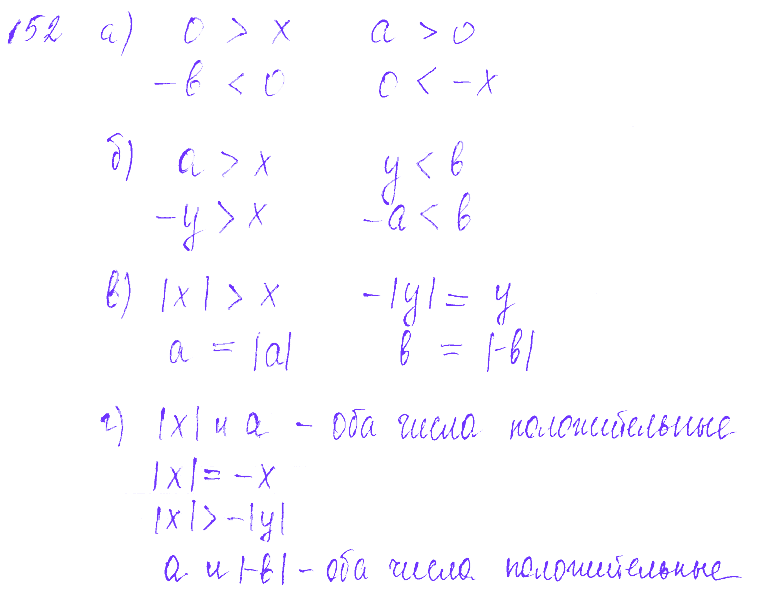 152 а) 0 > x a > 0
-в < 0 0 < -x
б) a > x y < в
-y > x -a < в
в) |x| > x -|y| = y
a = |a| в = |-в|
г) |x| и a - оба числа положительные
|x| = -x
|x| > -|y|
a и |-в| - оба числа положительные